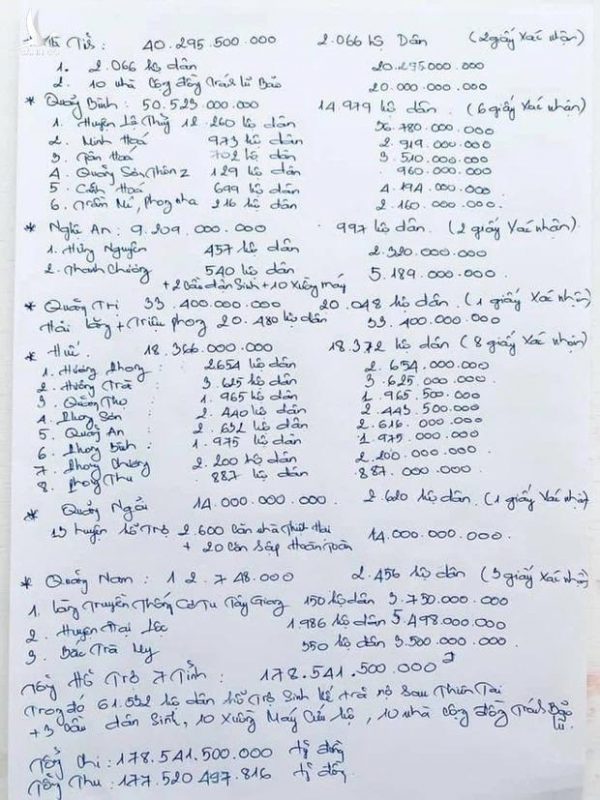 * Hà Tĩnh : 40.295.500.000 2.066 hộ Dân (2 giấy Xác nhận)
1. 2.066 hộ dân 20.295.000.000
2. 10 nhà Cộng đồng Tránh lũ Bão 20.000.000.000
* Quảng Bình : 50.523.000.000 14.979 hộ dân. (6 giấy Xác nhận)
1. Huyện Lệ Thủy 12.260 hộ dân 36.780.000.000
2. Minh Hoá 973 hộ dân 2.919.000.000
3. Tân Hoá 702 hộ dân 3.510.000.000
4. Quảng Sơn Thôn 2 129 hộ dân 960.000.000
5. Cảnh Hoá 699 hộ dân 4.194.000.000
6. Trần Mé, Phong nha 216 hộ dân 2.160.000.000
* Nghệ An : 9.209.000.000 997 hộ dân. (2 giấy Xác nhận)
1. Hưng Nguyên 457 hộ dân 2.320.000.000
2. Thanh Chương 540 hộ dân 5.189.000.000
+ 2 Cầu dân Sinh + 10 Xuồng máy
* Quảng Trị 33.400.000.000 20.048 hộ dân. (1 giấy Xác nhận)
Hải Lăng + Triệu Phong 20.480 hộ dân 33.400.000.000
* Huế. 18.366.000.000 18.372 hộ dân (8 giấy Xác nhận)
1. Hương Phong : 2654 hộ dân 2.654.000.000
2. Hương Trà : 3.625 hộ dân 3.625.000.000
3. Quảng Thọ : 1.965 hộ dân 1.965.500.000
4. Phong Sơn : 2.440 hộ dân 2.443.500.000
5. Quảng An : 2.632 hộ dân 2.616.000.000
6. Phong Bình : 1.975 hộ dân 1.975.000.000
7. Phong Chương : 2.200 hộ dân 2.200.000.000
8. Phong Thu : 887 hộ dân 887.000.000
* Quảng Ngãi 14.000.000.000. 2.620 hộ dân. (1 giấy Xác nhận)
13 huyện hỗ trợ 2.600 Căn nhà Thiệt Hại 14.000.000.000
+ 20 Căn Sập Hoàn Toàn
* Quảng Nam : 12.748.000 2.456 hộ dân (3 giấy Xác nhận)
1. Làng Truyền Thống Cơ Tu Tây Giang 150 hộ dân 3.750.000.000
2. Huyện Đại Lộc 1986 hộ dân 5.498.000.000
3. Bắc Trà My 350 hộ dân 3.500.000.000
Tổng Hỗ Trợ 7 Tỉnh : 178.541.500.000
Trong đó 61.532 hộ dân hỗ trợ Sinh kế trả nợ Sau Thiên Tai
+ 3 Cầu dân Sinh, 10 Xuồng Máy Cứu hộ, 10 nhà Cộng đồng Tránh Bão
lũ.
Tổng Chi : 178.541.500.000 tỷ đồng
Tổng Thu : 177.520.497.816 tỷ đồng.